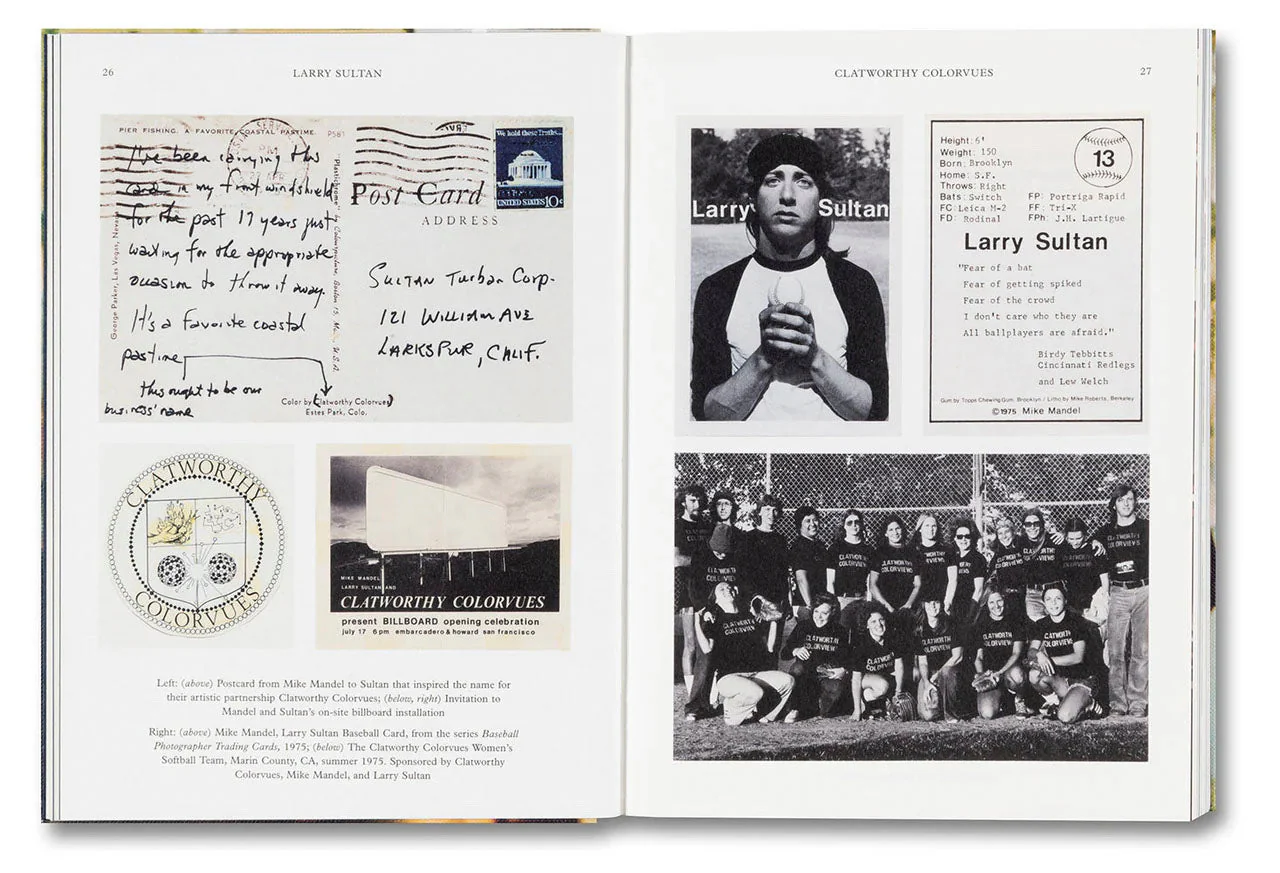 26
LARRY SULTAN
PIER FISHING. A FAVORITE COASTAL PASTIME.
P581
I've been carrying this
card in my front windshield
for the past 17 years just
waiting for the appropriate
occasion to throw it away.
It's a favorite coastal
pastime
this ought to be our
business' name
George Parker, Las Vegas, Nev.
"Plastichrome" by Colourpicture, Boston 15, Mass., U.S.A.
Color by (Clatworthy Colorvues)
Estes Park, Colo.
We hold these Truths...
UNITED STATES 10c
Post Card
ADDRESS
SULTAN Turban Corp.
121 WILLIAM AVE
LARKSPUR, CALIF.
CLATWORTHY
COLORVUES
MIKE MANDEL
LARRY SULTAN AND
CLATWORTHY COLORVUES
present BILLBOARD opening celebration
july 17 6pm embarcadero & howard san francisco
Left: (above) Postcard from Mike Mandel to Sultan that inspired the name for
their artistic partnership Clatworthy Colorvues; (below, right) Invitation to
Mandel and Sultan's on-site billboard installation
Right: (above) Mike Mandel, Larry Sultan Baseball Card, from the series Baseball
Photographer Trading Cards, 1975; (below) The Clatworthy Colorvues Women's
Softball Team, Marin County, CA, summer 1975. Sponsored by Clatworthy
Colorvues, Mike Mandel, and Larry Sultan
CLATWORTHY COLORVUES
27
Larry Sultan
Height: 6'
Weight: 150
Born: Brooklyn
Home: S.F.
Throws: Right
Bats: Switch
FC: Leica M-2
FD: Rodinal
13
FP: Portriga Rapid
FF: Tri-X
FPh: J.H. Lartigue
Larry Sultan
"Fear of a bat
Fear of getting spiked
Fear of the crowd
I don't care who they are
All ballplayers are afraid."
Birdy Tebbitts
Cincinnati Redlegs
and Lew Welch
Gum by Topps Chewing Gum, Brooklyn / Litho by Mike Roberts, Berkeley
©1975 Mike Mandel
CLATWORTHY
COLORVIEWS